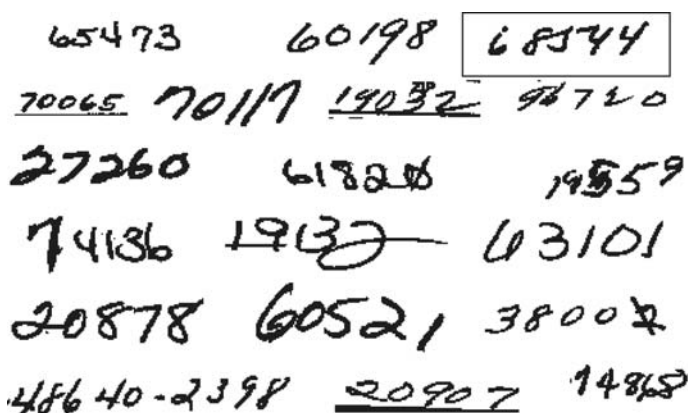 65473 60198 68544
70065 70117 19032 96720
27260 61820 19559
74136 19137 63101
20878 60521 38002
48640-2398 20907 14868